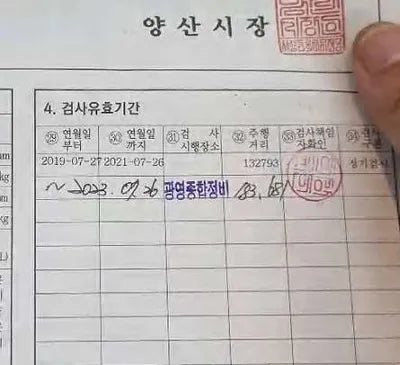 양산시장
4. 검사유효기간
㉙ 연월일 부터 ㉚ 연월일 까지 ㉛ 검사 시행장소 ㉜ 주행 거리 ㉝ 검사책임 자확인 ㉞ 검사
2019-07-27 2021-07-26 132793 정기검사
~ 2023. 07. 26 광영종합정비
mm
kg
kg